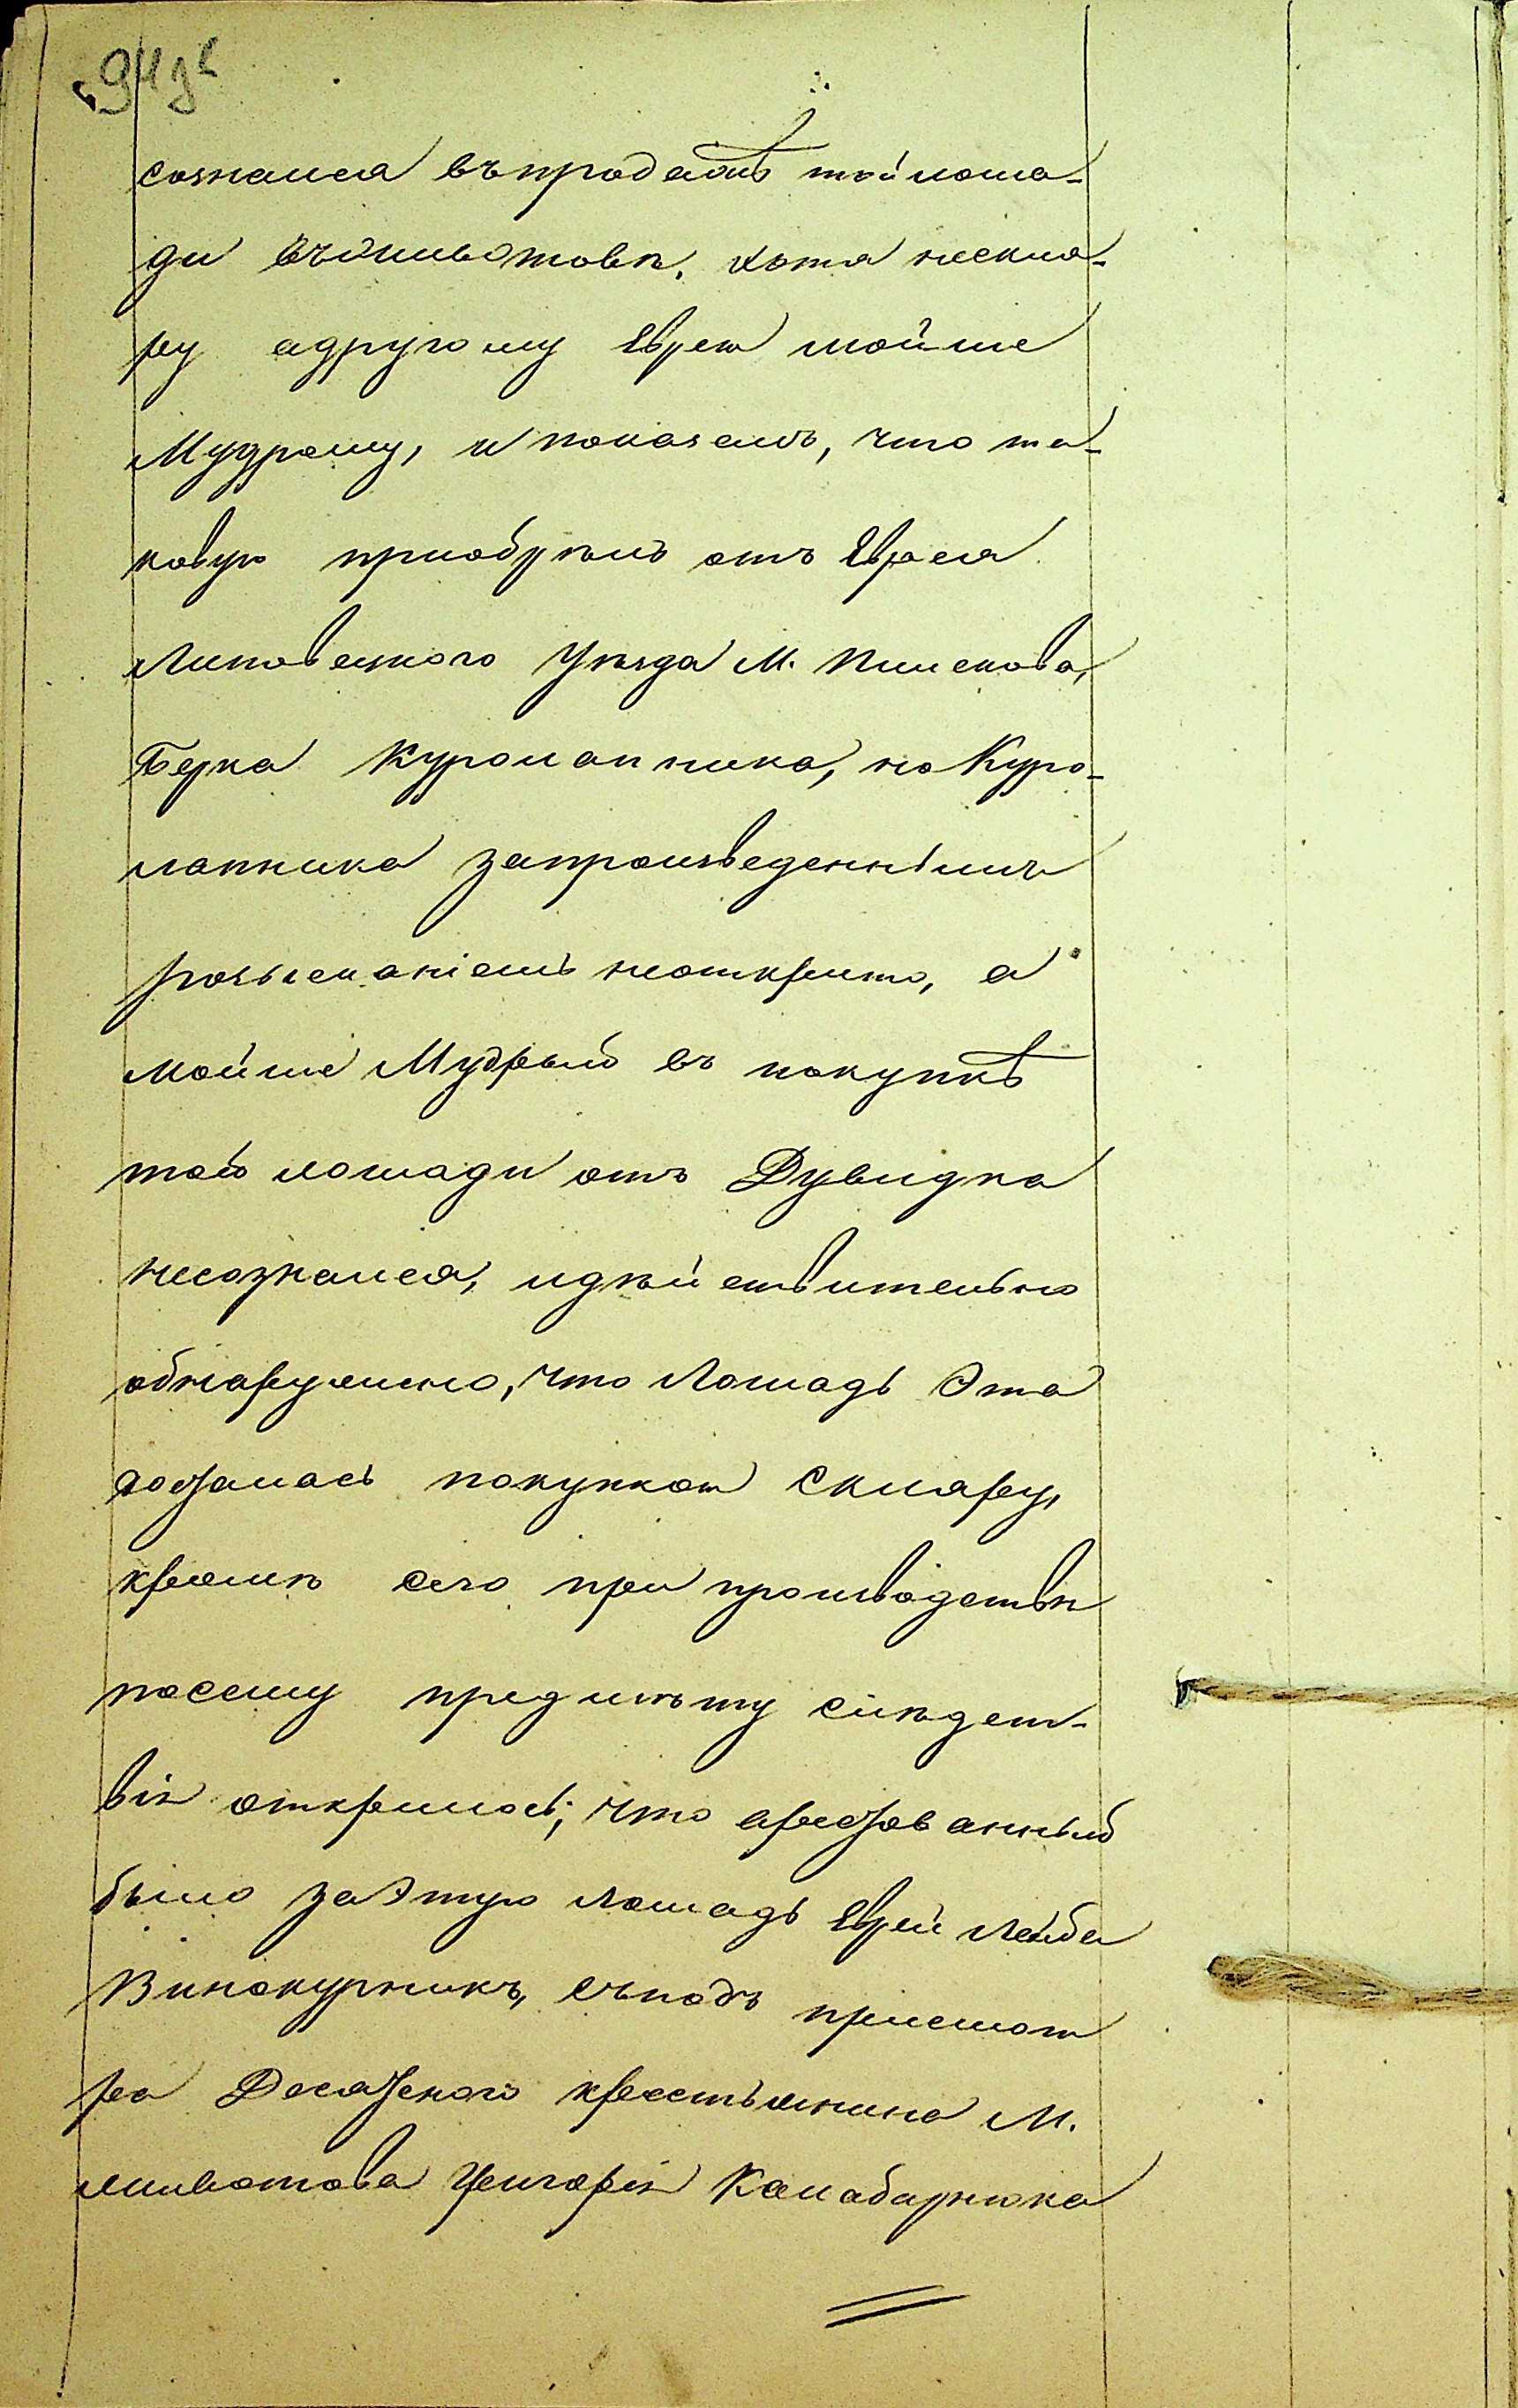 94 об
сознался въ продажѣ той лоша-
ди въ Животовѣ, хотя нескля-
ру а другому Еврею Мойше
Мудрому, и показалъ, что та-
ковую приобрѣлъ отъ Еврея
Липовецкого Уѣзда М. Пискова,
Берка Куролапника, но Куро-
лапника запроизведеннымъ
розысканіемъ неоткрыто, а
Мойше Мудрый въ покупкѣ
той лошади отъ Дувидка
несознался, идѣйствительно
обнаружено, что Лошадь Эта
досталась покупкою Скляру,
кромѣ сего при производствѣ
посему предмѣту слѣдст-
вія открылось, что арестованный
было за Этую лошадь Еврей Лейба
Винокурникъ, съподъ присмот
ра Десятского крестьянина М.
Животова Григорія Калабарнюка